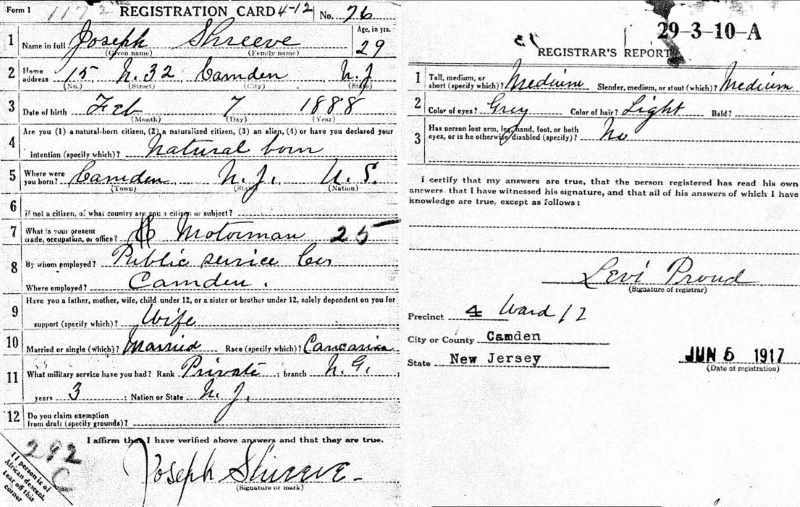 Form 1 1172 REGISTRATION CARD 4-12 No. 76
1 Name in full Joseph Shreeve Age, in yrs. 29
(Given name) (Family name)
2 Home address 15 N. 32 Camden N J
(No.) (Street) (City) (State)
3 Date of birth Feb 7 1888
(Month) (Day) (Year)
4 Are you (1) a natural-born citizen, (2) a naturalized citizen, (3) an alien, (4) or have you declared your
intention (specify which)? Natural born
5 Where were you born? Camden N. J. U. S.
(Town) (State) (Nation)
6 If not a citizen, of what country are you a citizen or subject?
7 What is your present trade, occupation, or office? Motorman 25
8 By whom employed? Public Service
Where employed? Camden.
9 Have you a father, mother, wife, child under 12, or a sister or brother under 12, solely dependent on you for
support (specify which)? Wife
10 Married or single (which)? Married Race (specify which)? Caucasian
11 What military service have you had? Rank Private ; branch N. G. ;
years 3 ; Nation or State N. J.
12 Do you claim exemption from draft (specify grounds)?
I affirm that I have verified above answers and that they are true.
292
C
If person is of African descent, tear off this corner
Joseph Shreeve
(Signature or mark)
29-3-10-A
REGISTRAR'S REPORT
1 Tall, medium, or short (specify which)? Medium Slender, medium, or stout (which)? Medium
2 Color of eyes? Grey Color of hair? Light Bald?
3 Has person lost arm, leg, hand, foot, or both eyes, or is he otherwise disabled (specify)? No
I certify that my answers are true, that the person registered has read his own
answers, that I have witnessed his signature, and that all of his answers of which I have
knowledge are true, except as follows:
Levi Proud
(Signature of registrar)
Precinct 4 Ward 12
City or County Camden
State New Jersey
JUN 5 1917
(Date of registration)